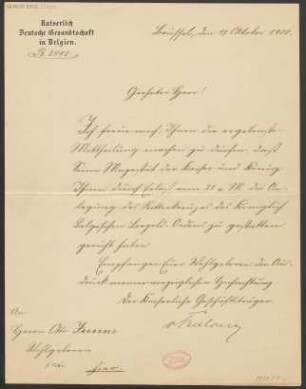 Kaiserlich
Deutsche Gesandtschaft
in Belgien.
Brüssel, den Oktober
Geehrter Herr!
Ich freue mich, Ihnen die ergebenste
Mittheilung machen zu dürfen, daß
Seine Majestät der Kaiser und König
Ihnen durch Erlaß vom M. die An-
legung des Ritterkreuzes des Königlich
Belgischen Leopold-Ordens zu gestatten
geruht haben.
Empfangen Euer Wohlgeboren den Aus-
druck meiner vorzüglichen Hochachtung
Der Kaiserliche Geschäftsträger
An
Herrn Otto
Wohlgeboren
hier.